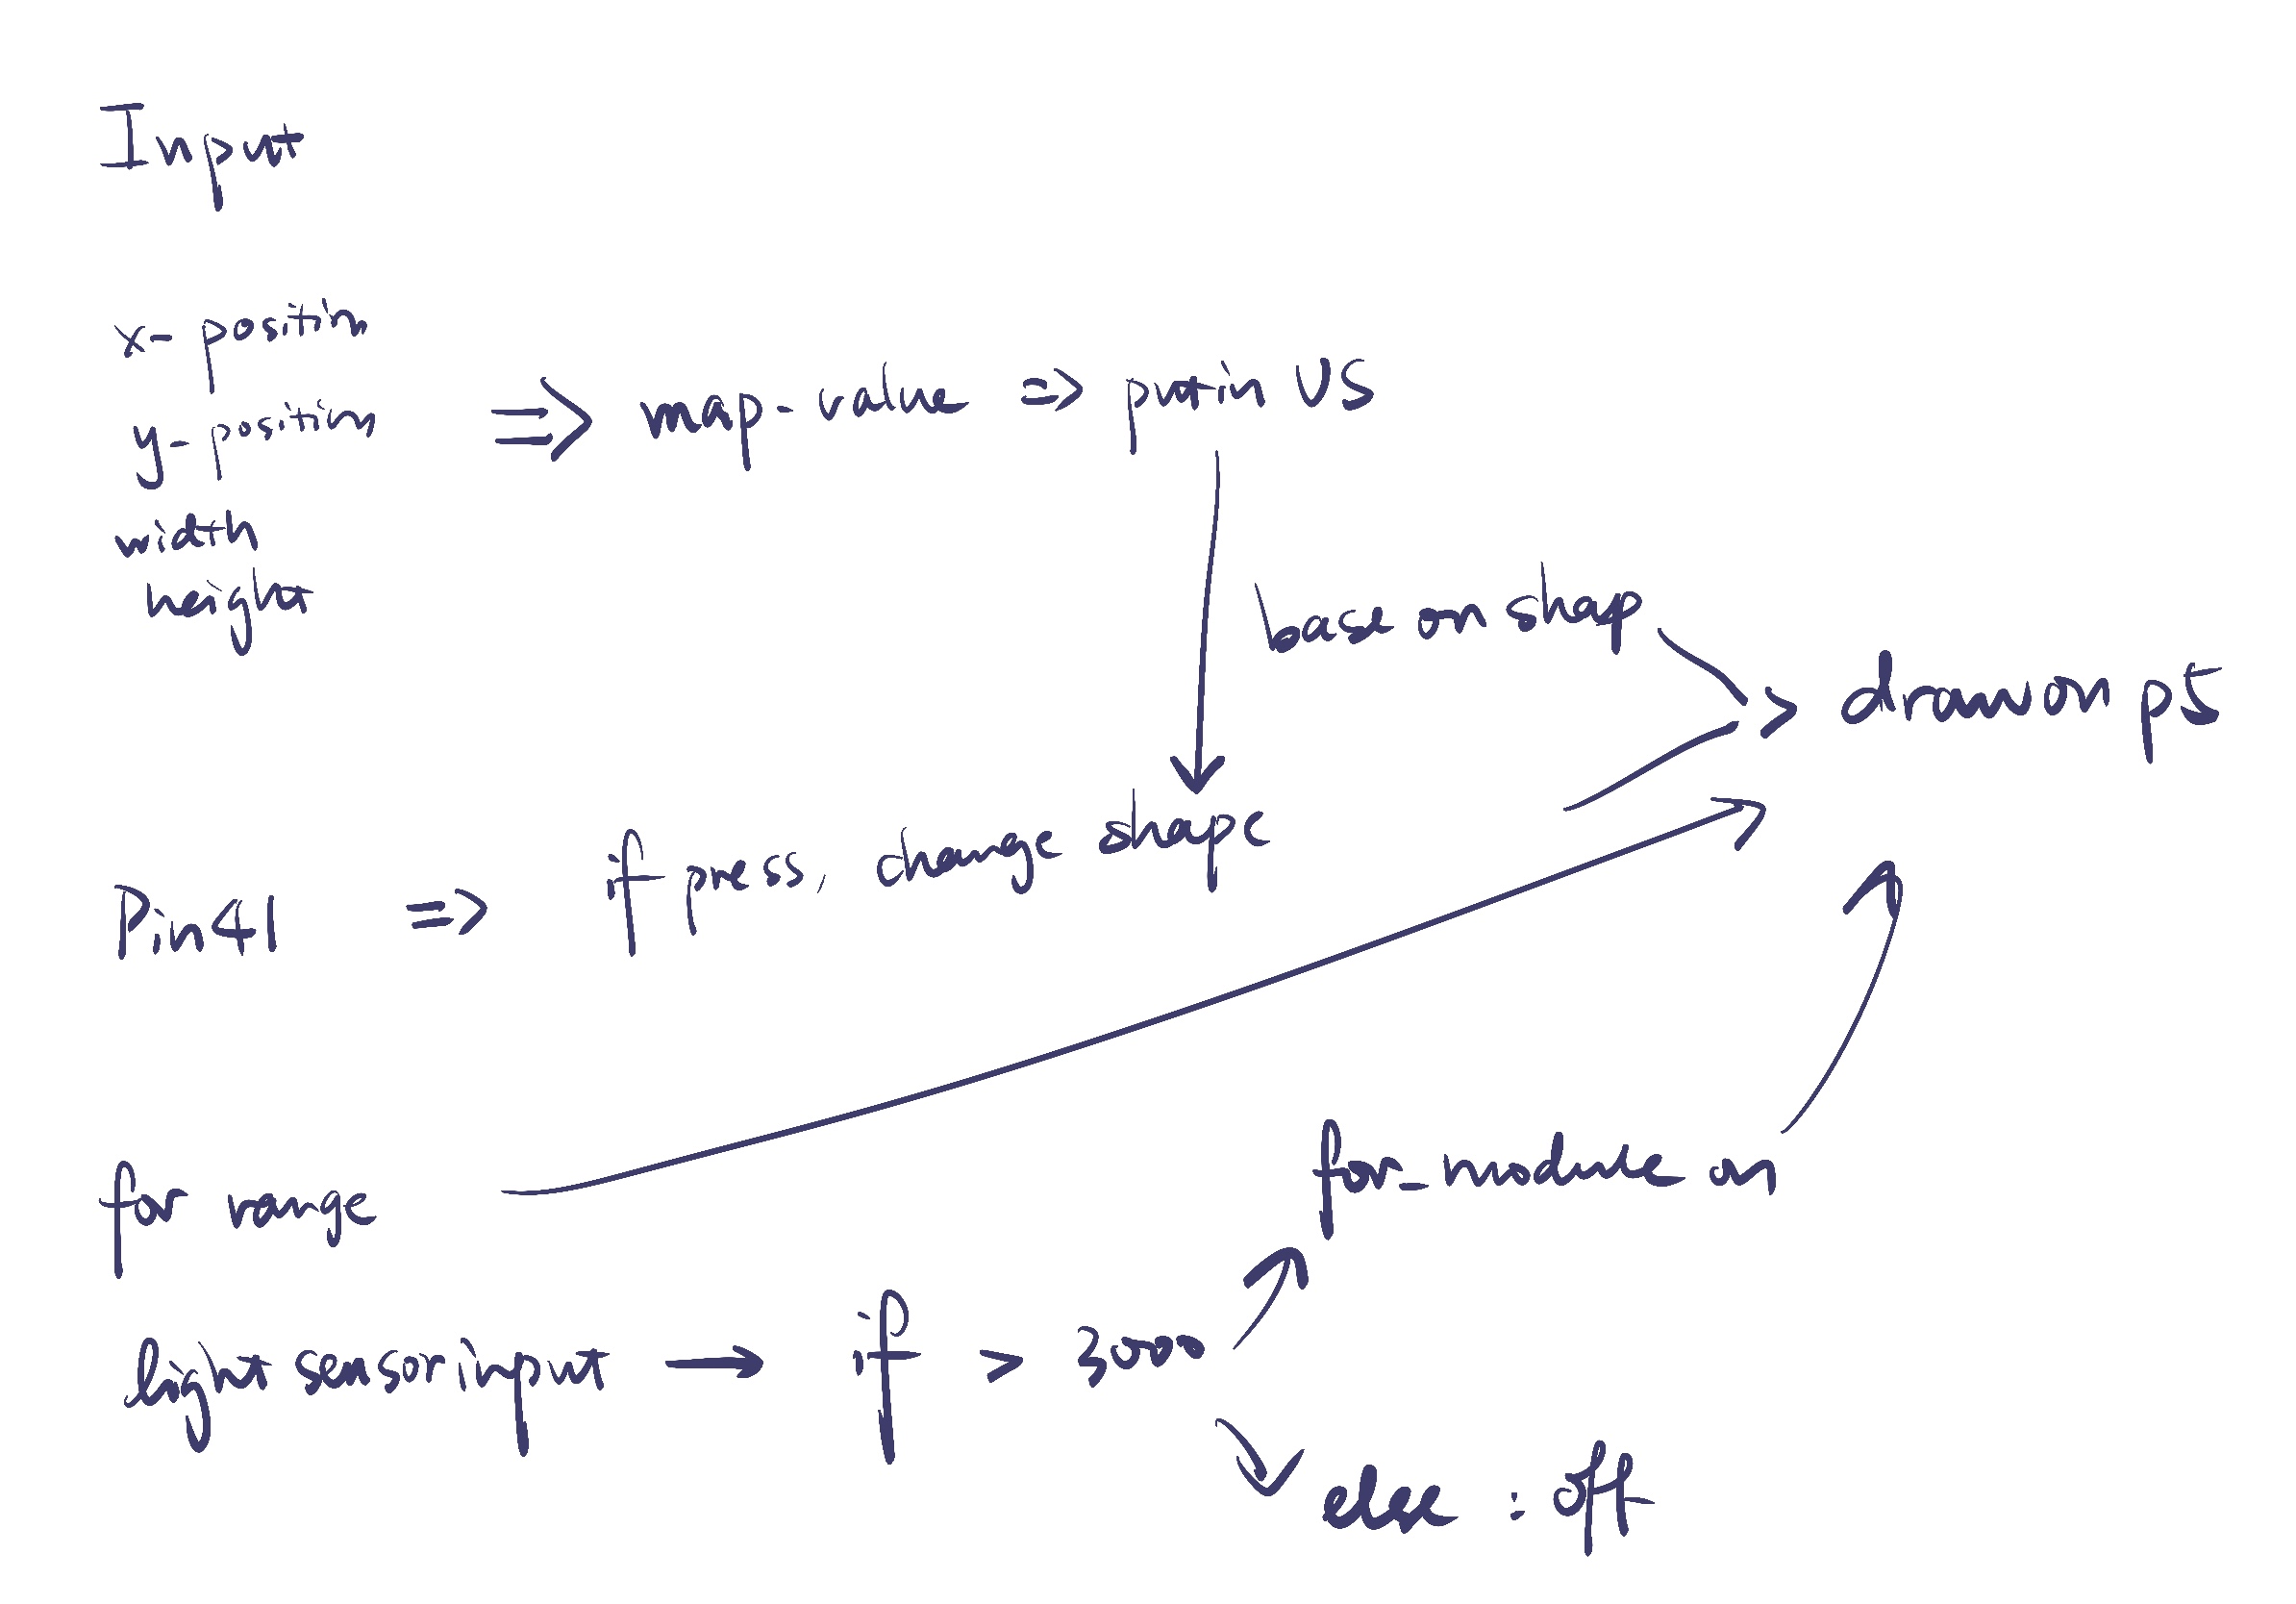 Input
x- position
y- position
⇒ map-value => put in VS
width
height
base on shap
> draw on p5
Pin41 => if press, change shape
for range
for_module on
light sensor input → if > 3000
else : off